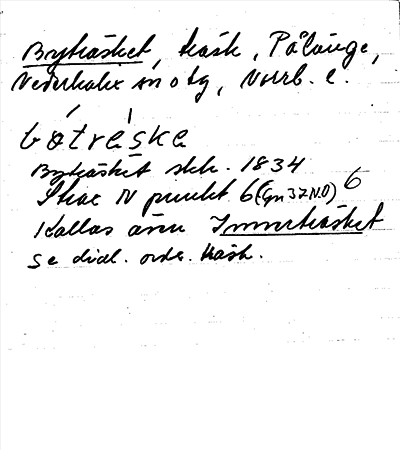 Byträsket, träsk, Pålänge,
Nederkalix sn o tg, Norrb. l.
bo̍tre̍ske
Byträsket skk. 1834
Strax N punkt 6 (Gn 37 N.O) 6
Kallas även Innerträsket
se dial. ordr. träsk.